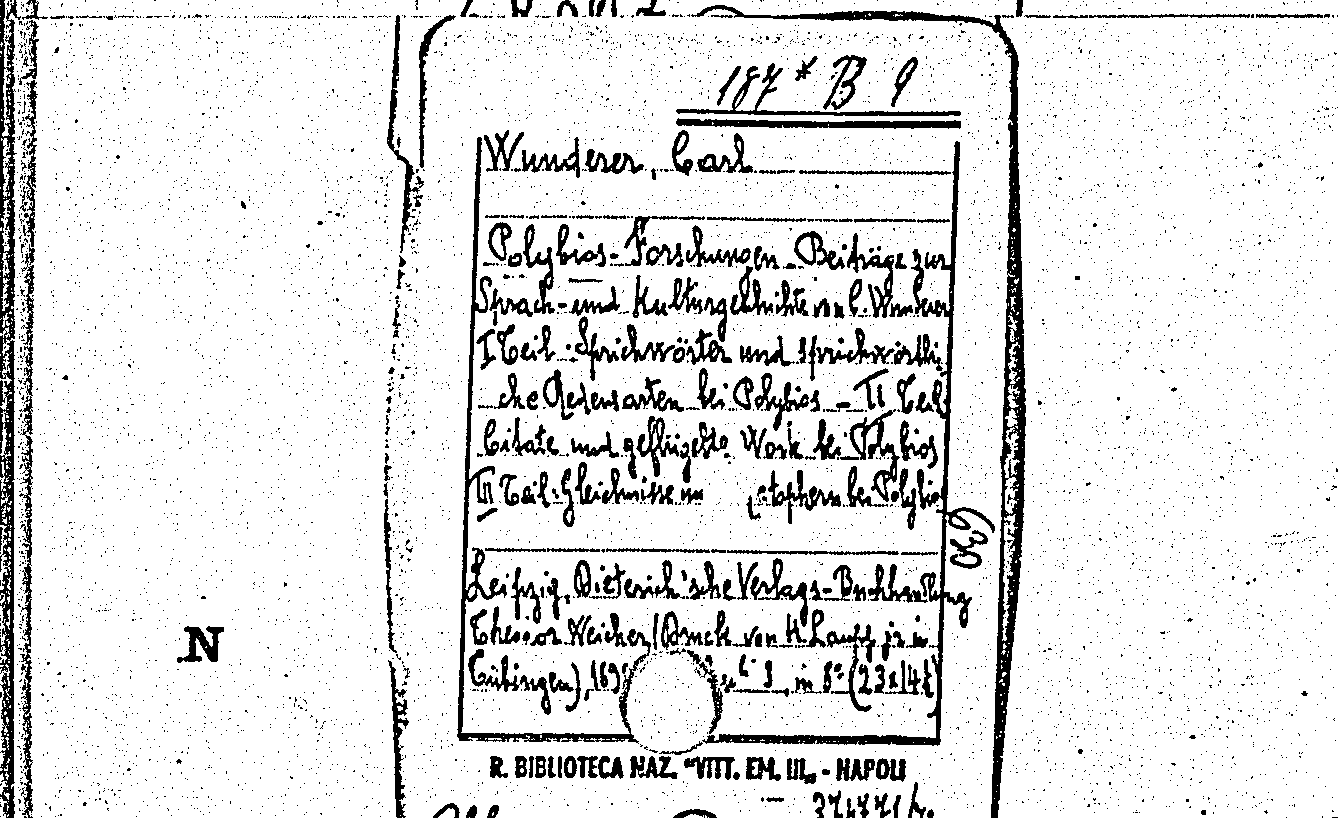 187* B 9
Wunderer, Carl
Polybios-Forschungen. Beiträge zur
Sprach- und Kulturgeschichte von C. Wunderer
I Teil: Sprichwörter und sprichwörtli-
che Redensarten bei Polybios - II Teil
Citate und geflügelte Worte bei Polybios
III Teil: Gleichnisse un etaphern bei Polybios
630
Leipzig, Dieterich'sche Verlags-Buchhandlung
Theodor Weicher (Druck von H. Laupp jr in
Tübingen), 189 in 8° (23x14½)
N
R. BIBLIOTECA NAZ. "VITT. EM. III„ - NAPOLI